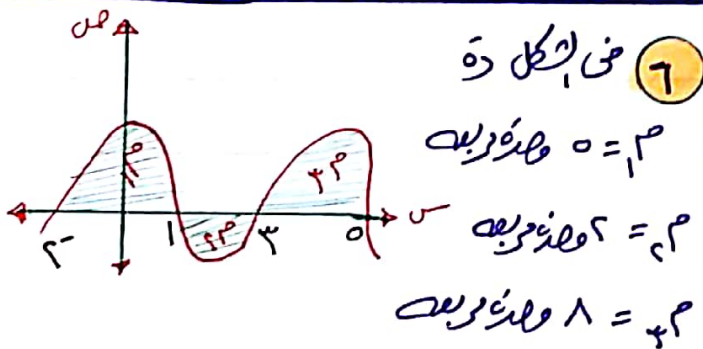 ٦ فى الشكل ده
م١ = ٥ وحدة مربعه
م٢ = ٢ وحدة مربعه
م٣ = ٨ وحدة مربعه
ص
م١
م٣
س
٢- ١ م٢ ٣ ٥